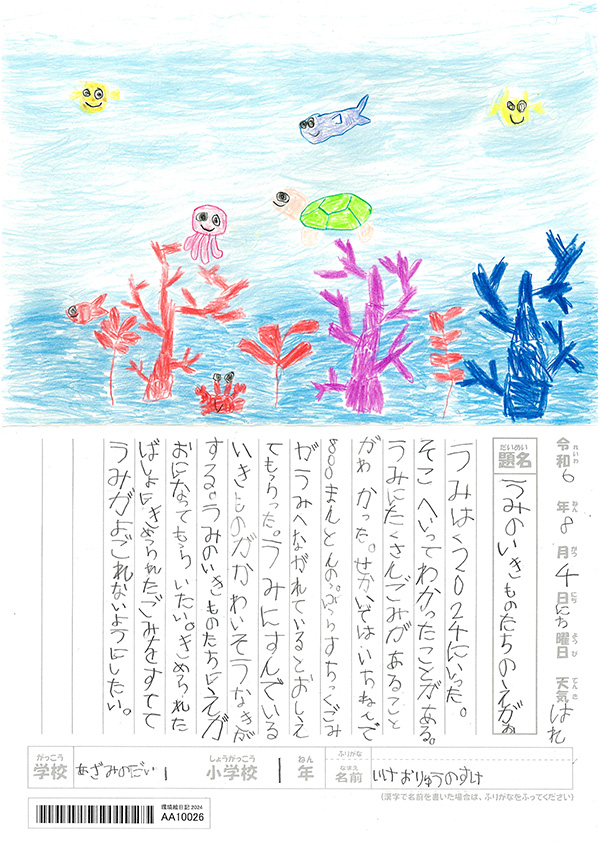 令和6年8月4日にち曜日 天気はれ
れいわ ねん がつ にち ようび てんき
だいめい
題名 うみのいきものたちのえがお
うみはく2024にいった。
そこへいってわかったことがある。
うみにたくさんごみがあること
がわかった。せかいではいちねんで
800まんとんのぷらすちっくごみ
がうみへながれているとおしえ
てもらった。うみにすんでいる
いきものがかわいそうなきが
する。うみのいきものたちにえが
おになってもらいたい。きめられた
ばしょにきめられたごみをすてて
うみがよごれないようにしたい。
がっこう しょうがっこう ねん ふりがな
学校 あざみのだい1 小学校 1年 名前 いけおりゅうのすけ
なまえ
(漢字で名前を書いた場合は、ふりがなをふってください)
環境絵日記2024
AA10026